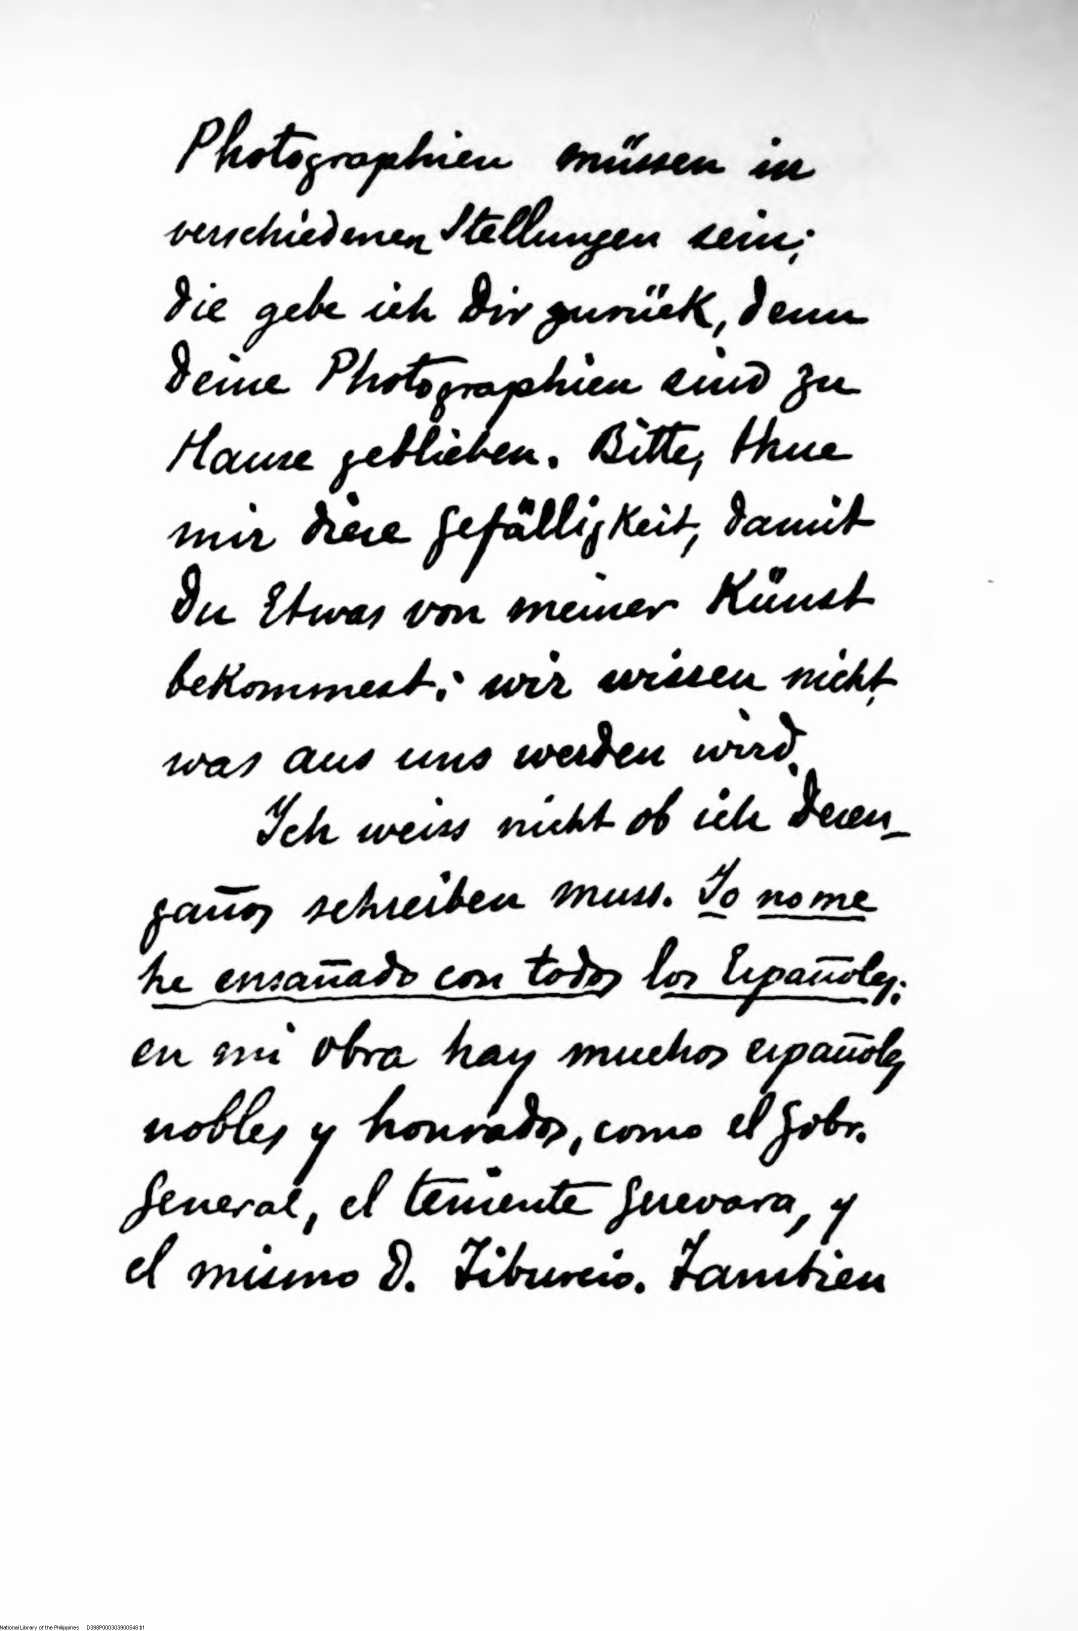 Photographien müssen in
verschiedenen Stellungen sein;
die gebe ich Dir zurück, denn
deine Photographien sind zu
Hause geblieben. Bitte, thue
mir diese Gefälligkeit, damit
du Etwas von meiner Künst
bekommest: wir wissen nicht,
was aus uns werden wird.
Ich weiss nicht ob ich Desen-
gaños schreiben muss. Yo no me
he ensañado con todos los Españoles;
en mi obra hay muchos españoles
nobles y honrados, como el Gobr.
General, el teniente Guevara, y
el mismo D. Tiburcio. Tambien
National Library of the Philippines